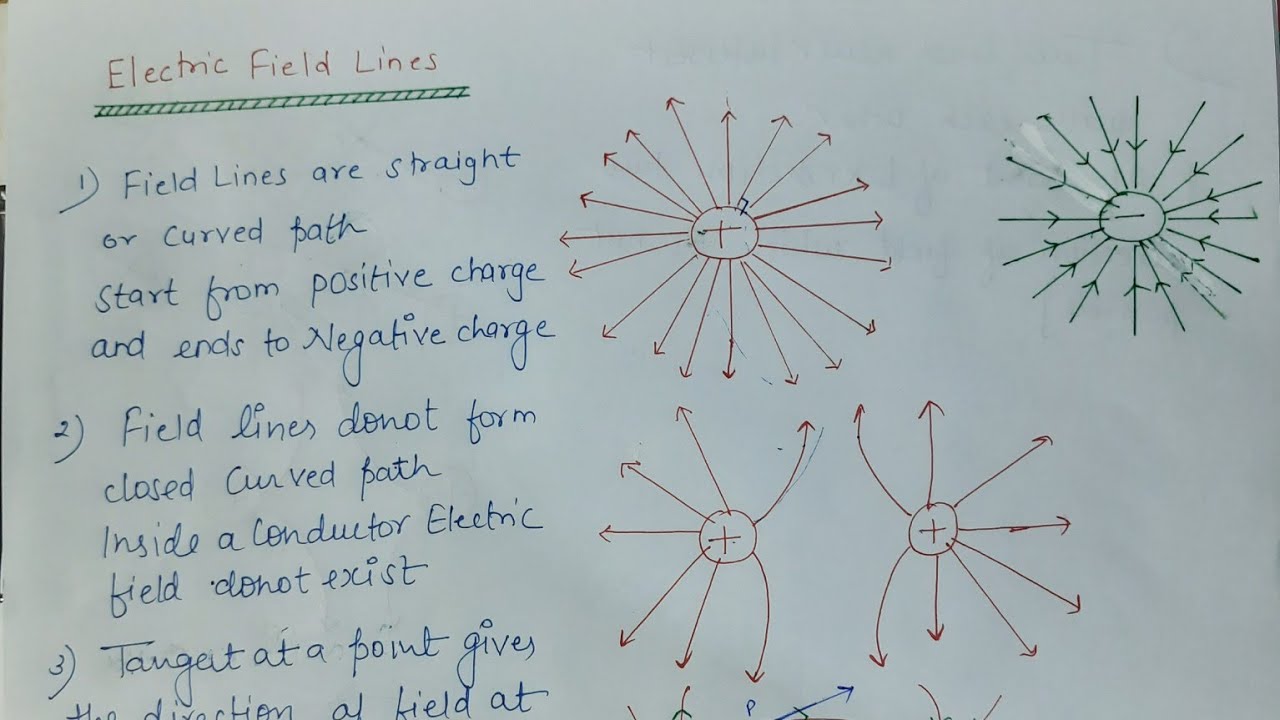 Electric Field Lines
1) Field Lines are straight
or curved path
Start from positive charge
and ends to Negative charge
2) Field lines donot form
closed Curved path
Inside a Conductor Electric
field donot exist
3) Tangent at a point gives
the direction of field at
+
−
+
+
P